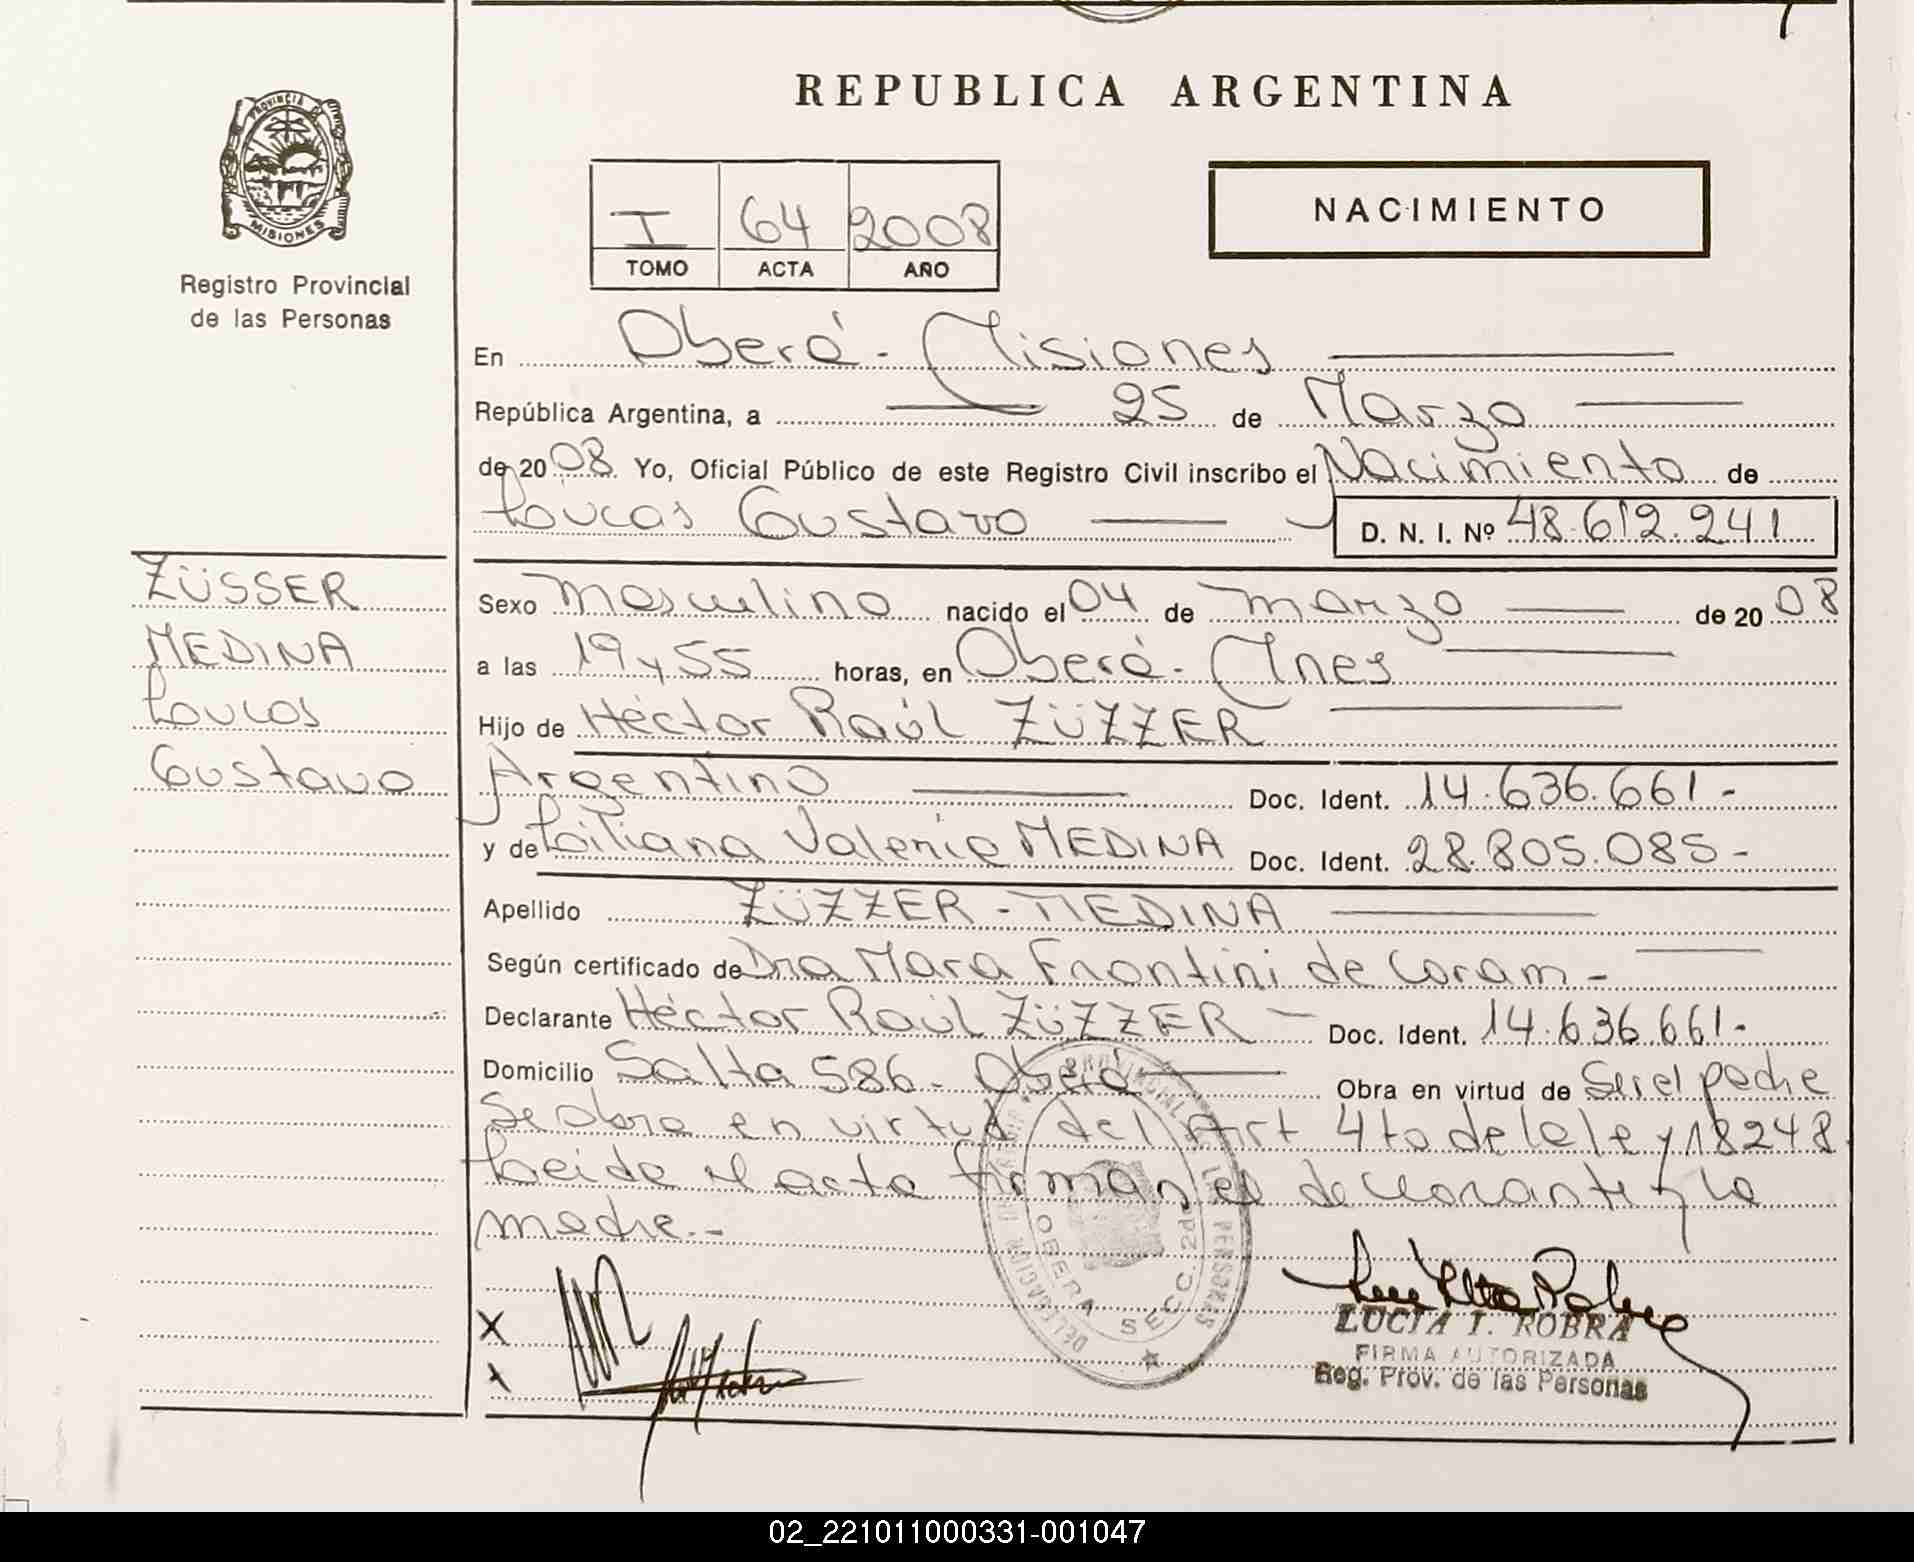 REPUBLICA ARGENTINA
PROVINCIA DE
MISIONES
Registro Provincial
de las Personas
I 64 2008
TOMO ACTA AÑO
NACIMIENTO
En Oberá - Misiones
República Argentina, a 25 de Marzo
de 2008. Yo, Oficial Público de este Registro Civil inscribo el Nacimiento de
Loucas Gustavo D. N. I. Nº 48.612.241
ZÜSSER
MEDINA
Loucas
Gustavo
Sexo masculino nacido el 04 de marzo de 2008
a las 19 y 55 horas, en Oberá - Mnes
Hijo de Héctor Raúl ZÜZZER
Argentino Doc. Ident. 14.636.661-
y de Liliana Valeria MEDINA Doc. Ident. 28.805.085-
Apellido ZÜZZER - MEDINA
Según certificado de Dra Mara Frontini de Coram -
Declarante Héctor Raúl ZÜZZER - Doc. Ident. 14.636.661-
Domicilio Salta 586 - Oberá Obra en virtud de Ser el padre
Se obra en virtud del Art 4to de la ley 18248
Leida el acta firman el declarante y la
madre.-
OBERA SECC. 2da
X
LUCIA I. ROBRA
FIRMA AUTORIZADA
Reg. Prov. de las Personas
02_221011000331-001047